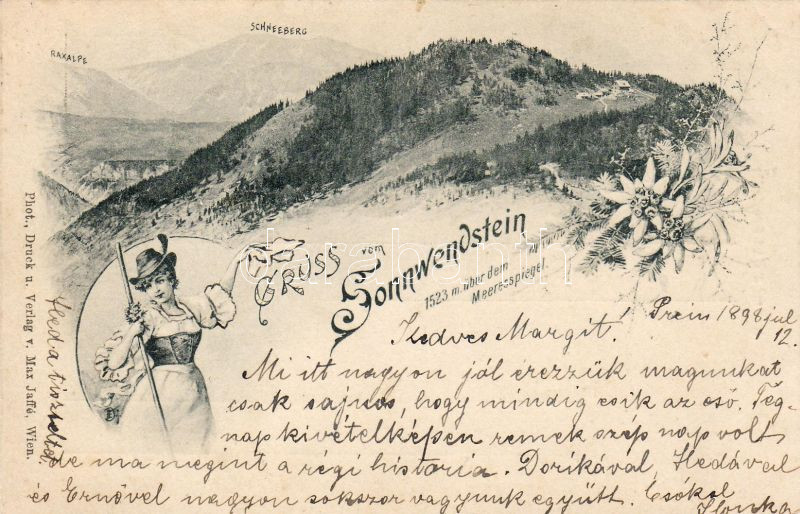 SCHNEEBERG
RAXALPE
GRUSS vom Sonnwendstein
1523 m. über dem
Meeresspiegel.
Phot., Druck u. Verlag v. Max Jaffé, Wien.
Prein 1898 jul
12.
Kedves Margit!
Mi itt nagyon jól érezzük magunkat
csak sajnos, hogy mindig esik az eső. Teg-
nap kivételképen remek szép nap volt
de ma megint a régi historia. Dorikával, Hedával
és Ernővel nagyon sokszor vagyunk együtt. Csókol
Ilonka
Heda tiszteltet
darabanth